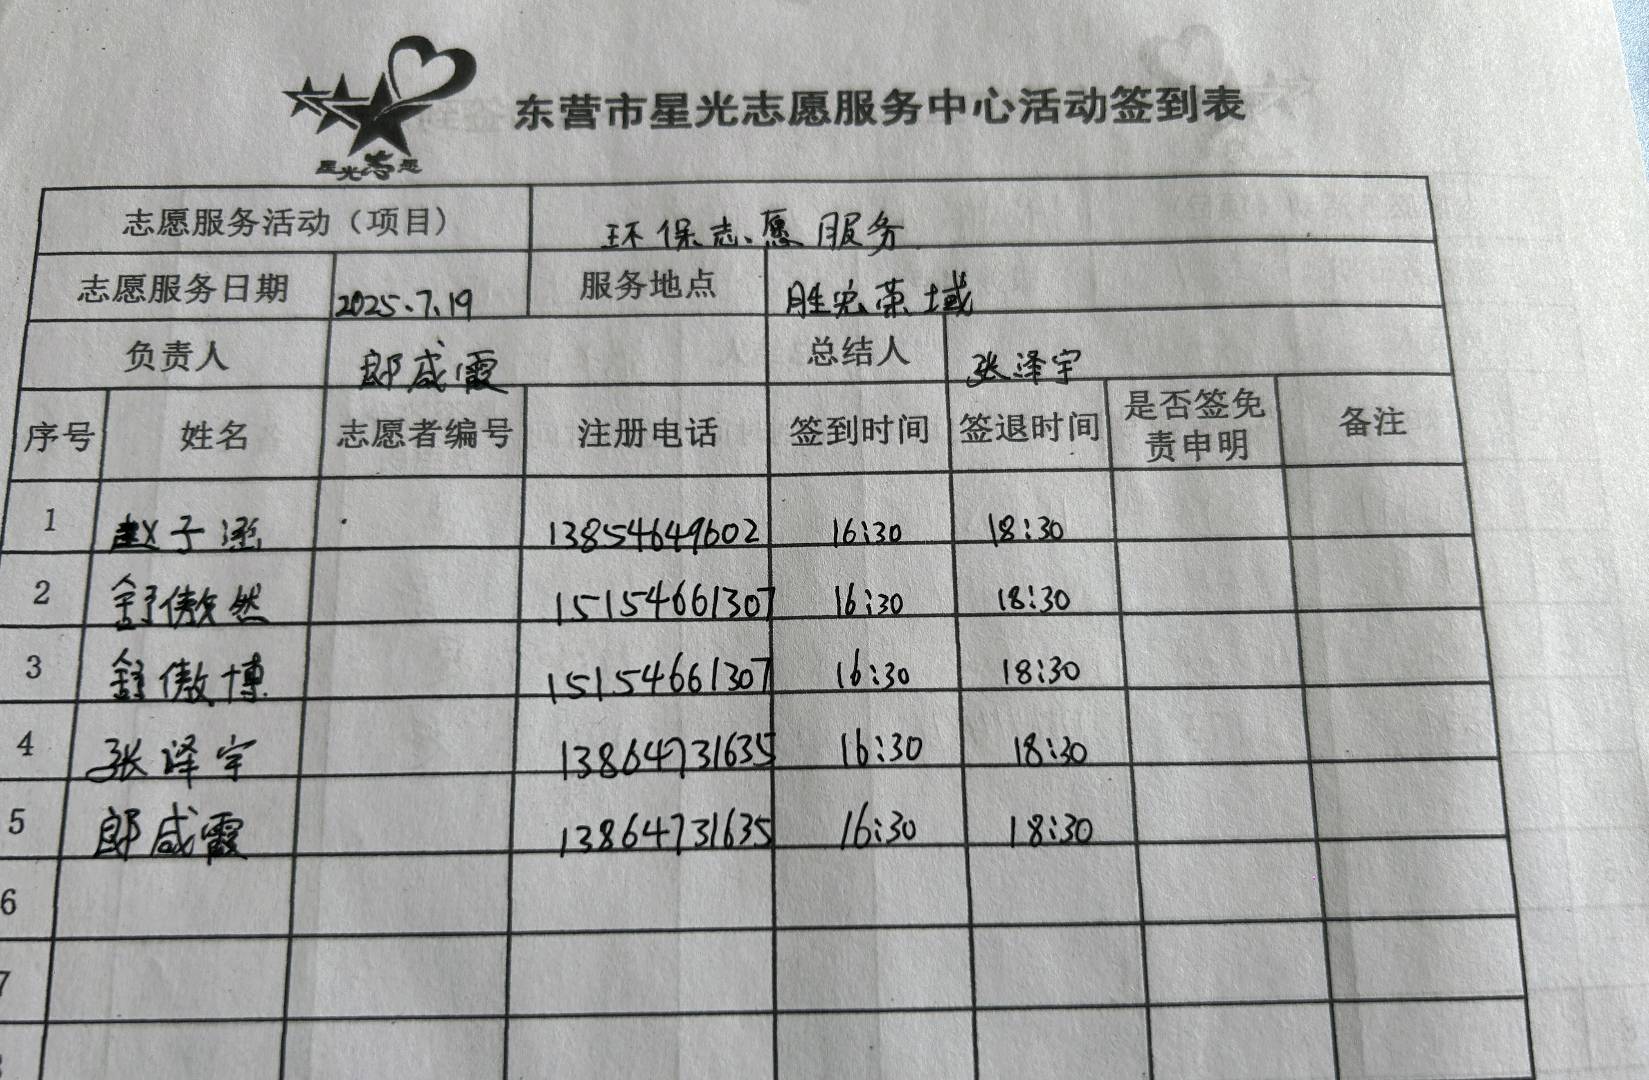 星光志愿
东营市星光志愿服务中心活动签到表
志愿服务活动（项目） 环保志愿服务
志愿服务日期 2025.7.19 服务地点 胜宏荣域
负责人 郎咸霞 总结人 张泽宇
序号 姓名 志愿者编号 注册电话 签到时间 签退时间 是否签免责申明 备注
1 赵子涵 13854649602 16:30 18:30
2 舒傲然 15154661307 16:30 18:30
3 舒傲博 15154661307 16:30 18:30
4 张泽宇 13864731635 16:30 18:30
5 郎咸霞 13864731635 16:30 18:30
6
7